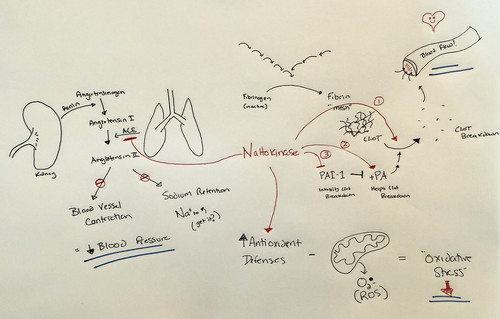 Blood Flow!
Fibrinogen
(inactive)
Fibrin
"mesh"
CLOT
1
CLOT
Breakdown
Angiotensinogen
Renin
Angiotensin I
ACE
Angiotensin II
Kidney
Nattokinase
2
3
PAI-1
tPA
Inhibits Clot
Breakdown
Helps Clot
Breakdown
Blood Vessel
Contriction
Sodium Retention
Na+
(get it?)
= Blood Pressure
Antioxident
Defenses
-
O2
(ROS)
=
"Oxidative
Stress"